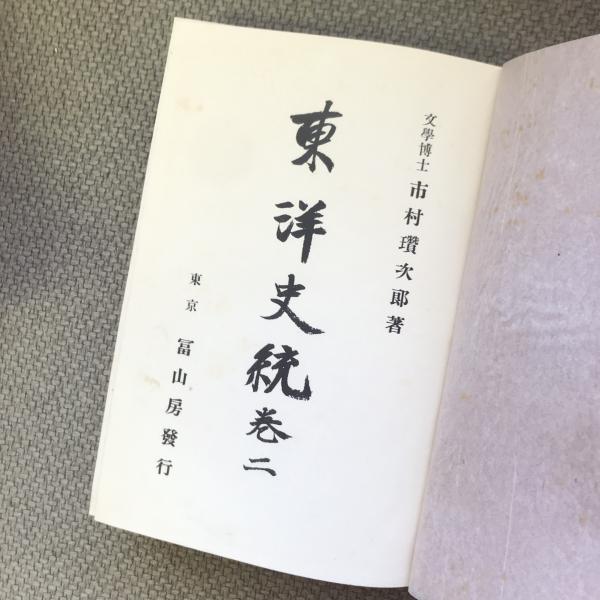 文學博士 市村瓚次郎著
東洋史統 卷二
東京 冨山房發行